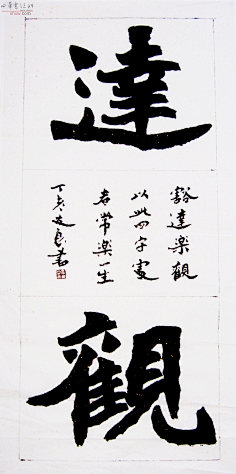 達
豁達樂觀
以此四字處
者常樂一生
丁亥志良書
觀